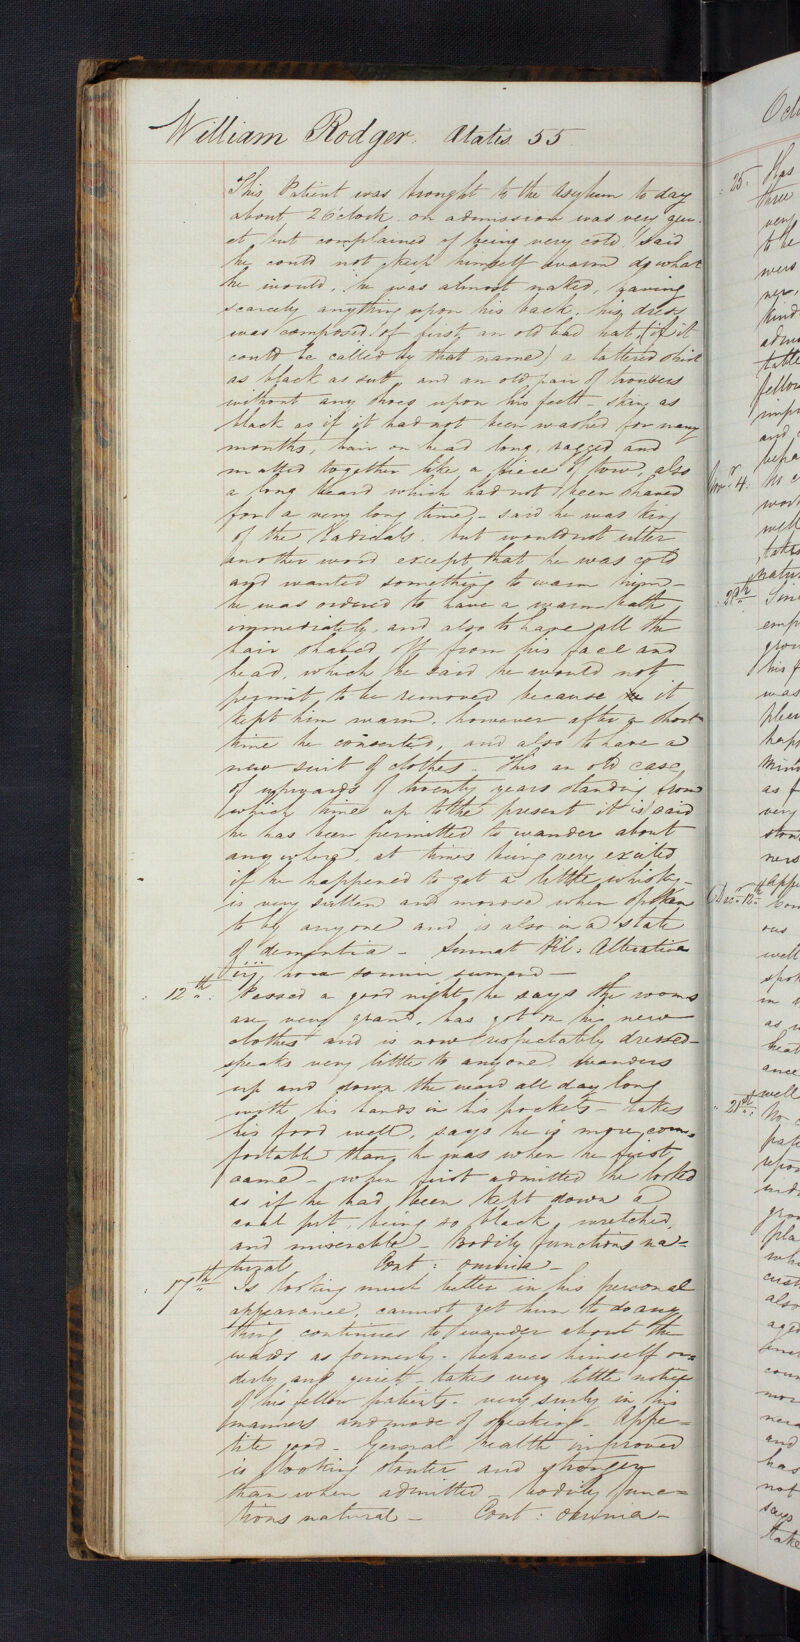 William Rodger. Ætatis 55.
This Patient was brought to the Asylum to day
about 2 O'clock. on admission was very qui-
et, but complained of being very cold. said
he could not keep himself warm do what
he would, he was almost naked, having
scarcely anything upon his back, his dress
was composed of first an old bad hat, (if it
could be called by that name) a tattered shirt
as black as sut, and an old pair of trousers
without any shoes upon his feet - skin as
black as if it had not been washed for many
months, hair on head long, ragged and
matted together like a piece of tow, also
a long beard which had not been shaved
for a very long time, - said he was King
of the Radicals. but would not utter
another word except that he was cold
and wanted something to warm him -
he was ordered to have a warm bath
immediately, and also to have all the
hair shaved off from his face and
head, which he said he would not
permit to be removed because it
kept him warm. however after a short
time he consented, and also to have a
new suit of clothes. This an old case,
of upwards of twenty years standing from
which time up to the present it is said
he has been permitted to wander about
any where, at times being very excited
if he happened to get a little whisky -
is very sullen and morose when spoken
to by anyone and is also in a state
of dementia - Sumat Pil: Alterativa
iij hora somni sumend -
12th. Passed a good night, he says the rooms
are very grand, has got on his new
clothes and is now respectably dressed -
speaks very little to anyone. wanders
up and down the ward all day long
with his hands in his pockets - takes
his food well, says he is more com-
fortable than he was when he first
came - when first admitted he looked
as if he had been kept down a
coal pit, being so black, wretched,
and miserable - Bodily functions na=
tural Cont: omnia -
17th Is looking much better in his personal
appearance, cannot get him to do any
thing, continues to wander about the
wards as formerly. behaves himself or=
derly and quiet - takes very little notice
of his fellow patients. very surly in his
manners and mode of speaking - Appe=
tite good - General health improved
is looking stouter and stronger
than when admitted - bodily func=
tions natural - Cont: omnia -
25. Has
three
very
to be
were
new,
kind
Novr. 4.
well
takes
21st Sinc
emp
his f
was
mind
as f
very
Decr. 12th
ous
well
spok
in
as
heal
ance
well
21st No
also
aged
and
has
not
says
take